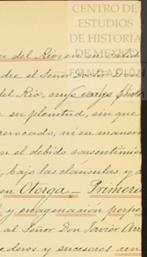 CENTRO DE
ESTUDIOS
DE HISTORIA
DE MEXICO
del Río, en su
dre el Señor
del Río, cuyo cargo
en plenitud, sin que
vocado, ni en manera
n el debido consentimien
bajo las cláusulas y
en Otorga — Primero
y enagenación perpe
al Señor Don Javier Arr
deros y sucesores con